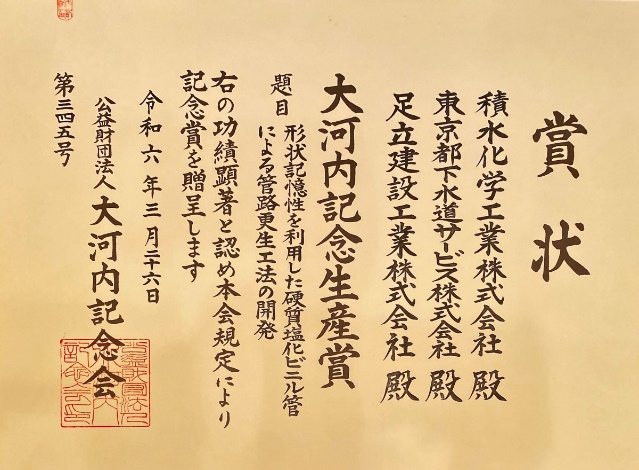 賞状
積水化学工業株式会社 殿
東京都下水道サービス株式会社 殿
足立建設工業株式会社 殿
大河内記念生産賞
題目 形状記憶性を利用した硬質塩化ビニル管
による管路更生工法の開発
右の功績顕著と認め本会規定により
記念賞を贈呈します
令和六年三月二十六日
公益財団法人 大河内記念会
第三四五号